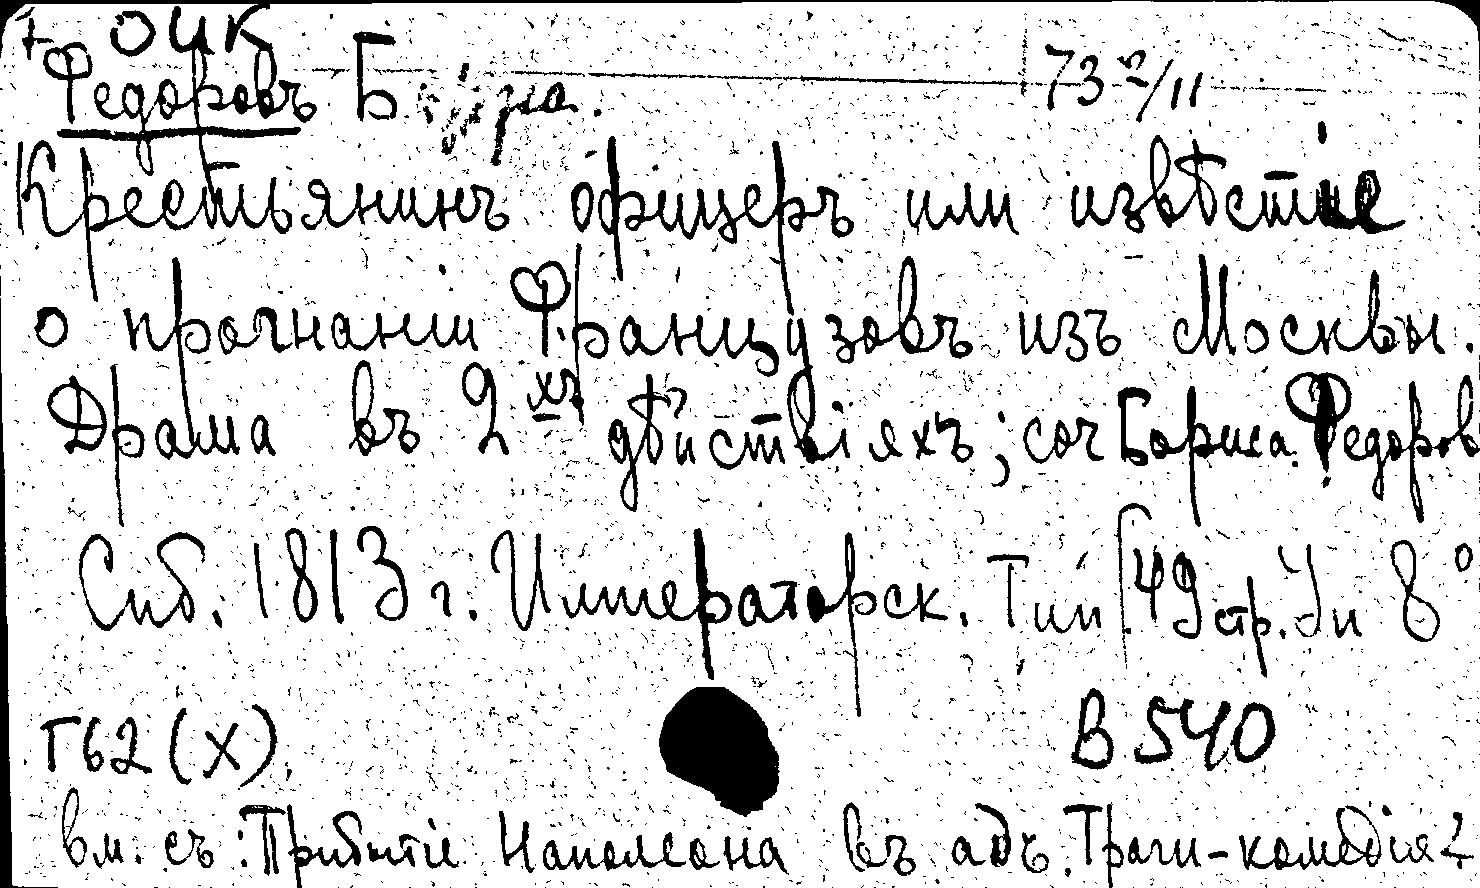 + ОИК
Федоровъ Б 73 2/11
Крестьянинъ офицеръ или извѣстіе
о прогнаніи Французовъ изъ Москвы.
Драма въ 2хъ дѣйствіяхъ; соч Бориса Федоров
Спб. 1813 г. Императорск. Тип. 49 стр. In 8°
Г62 (X) В 540
вм. съ: Прибытіе Наполеона въ адъ. Траги-комедія